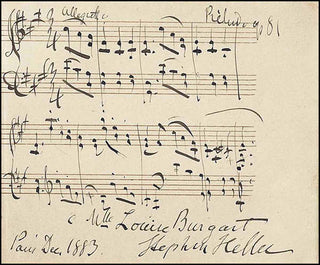 Allegretto Prélude op 81
3 4
3 4
à Mlle Louise Burgart
Paris Dec 1883 Stephen Heller